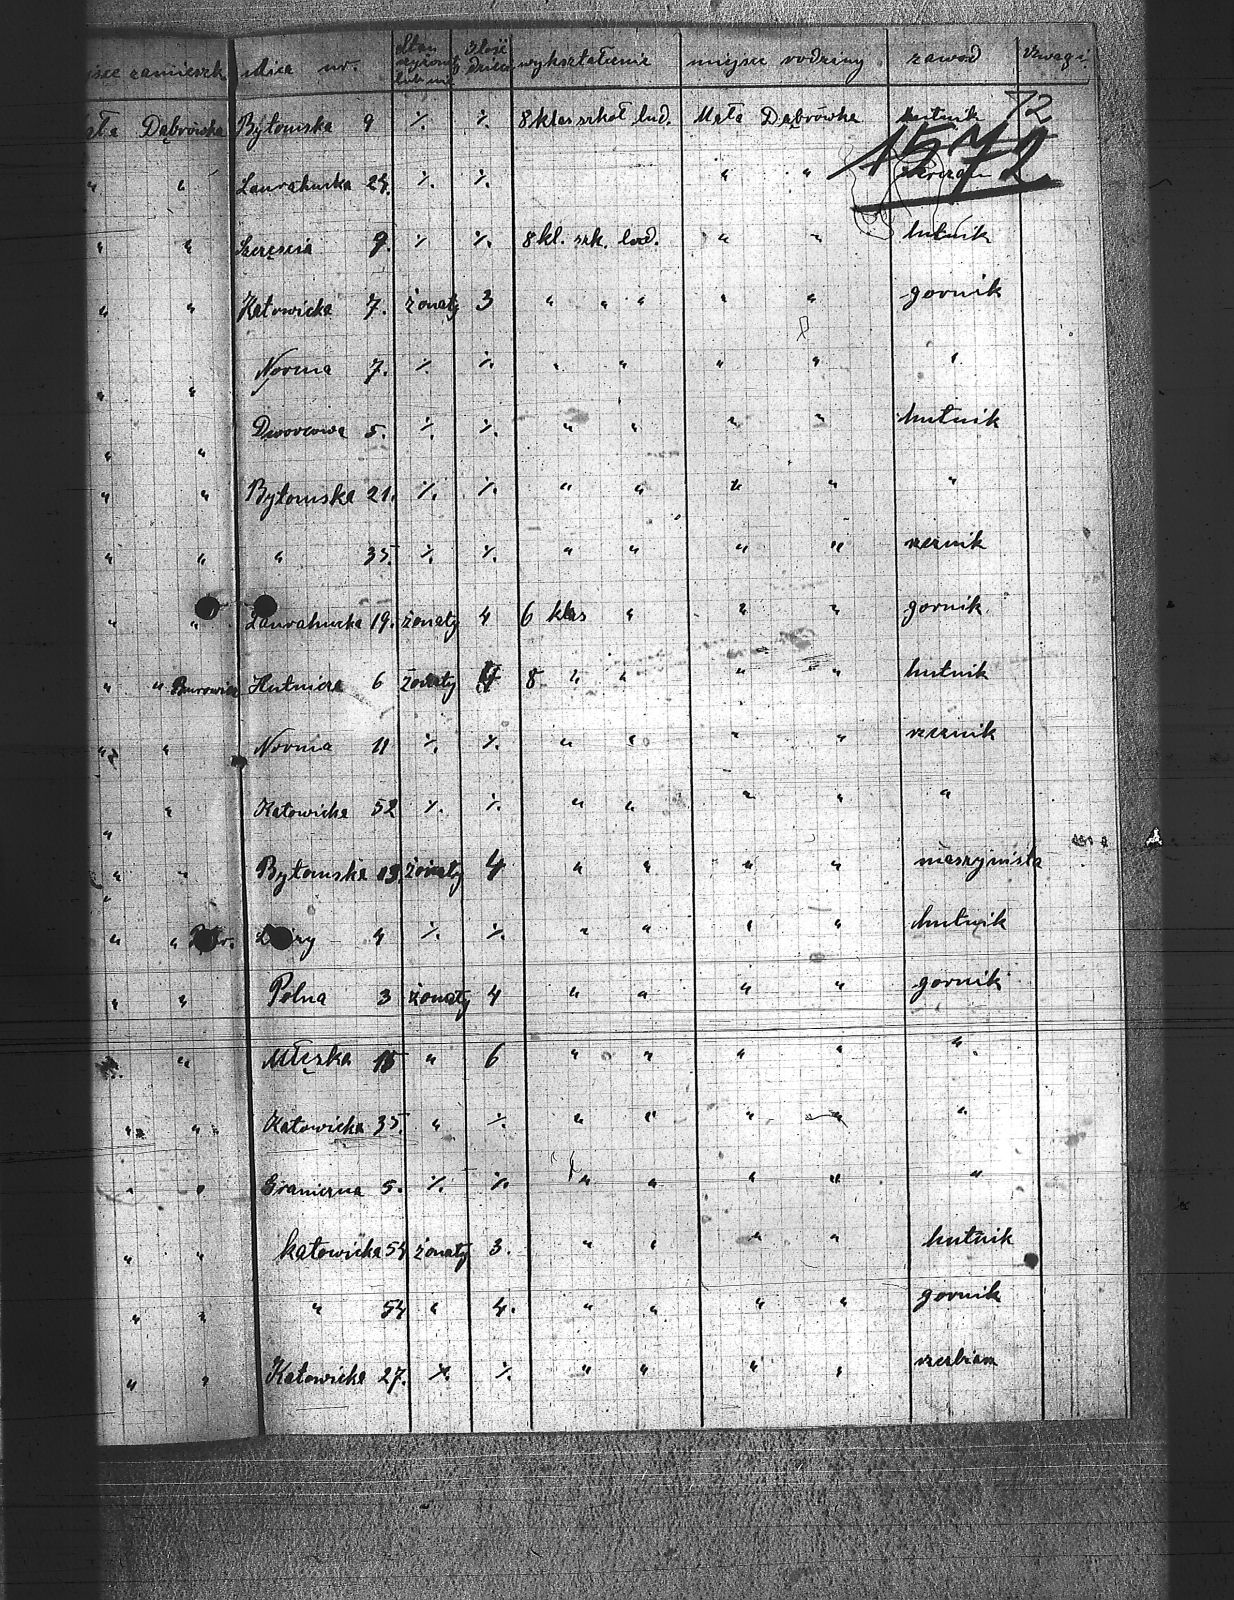 zamieszk. ulica nr. Stan cywilny lub nie Ilość dzieci wykształcenie miejsce rodziny zawód Uwagi
72
Dąbrówka Bytomska 9 ./. ./. 8 klas szkoł lud. Mała Dąbrówka hutnik
1572
" " Laurahucka 24. ./. ./. " "
" " 9. ./. ./. 8 kl. szk. lud. " " hutnik
" " Katowicka 7. żonaty 3 " " " " " gornik
" " Norma 7. ./. ./. " " " " "
" " Dworcowa 5. ./. ./. " " " " hutnik
" " Bytomska 21. ./. ./. " " " " "
" " " 35. ./. ./. " " " " rzeznik
" " Laurahucka 19. żonaty 4 6 klas " " " gornik
" " Burowiec Hutnicza 6 żonaty 4 8 " " " " hutnik
" " Norma 11 ./. ./. " " " " rzeznik
" " Katowicka 52 ./. ./. " " " " "
" " Bytomska 13. żonaty 4 " " " " maszynista
" " 4 ./. ./. " " " " hutnik
" " Polna 3 żonaty 4 " " " " gornik
" " 15 " 6 " " " " "
" " Katowicka 35. " ./. " " " " "
" " Graniczna 5. ./. ./. " " " " "
" " Katowicka 54 żonaty 3. " " " " hutnik
" " " 54 " 4. " " " " gornik
" " Katowicka 27. ./. ./. " " " "